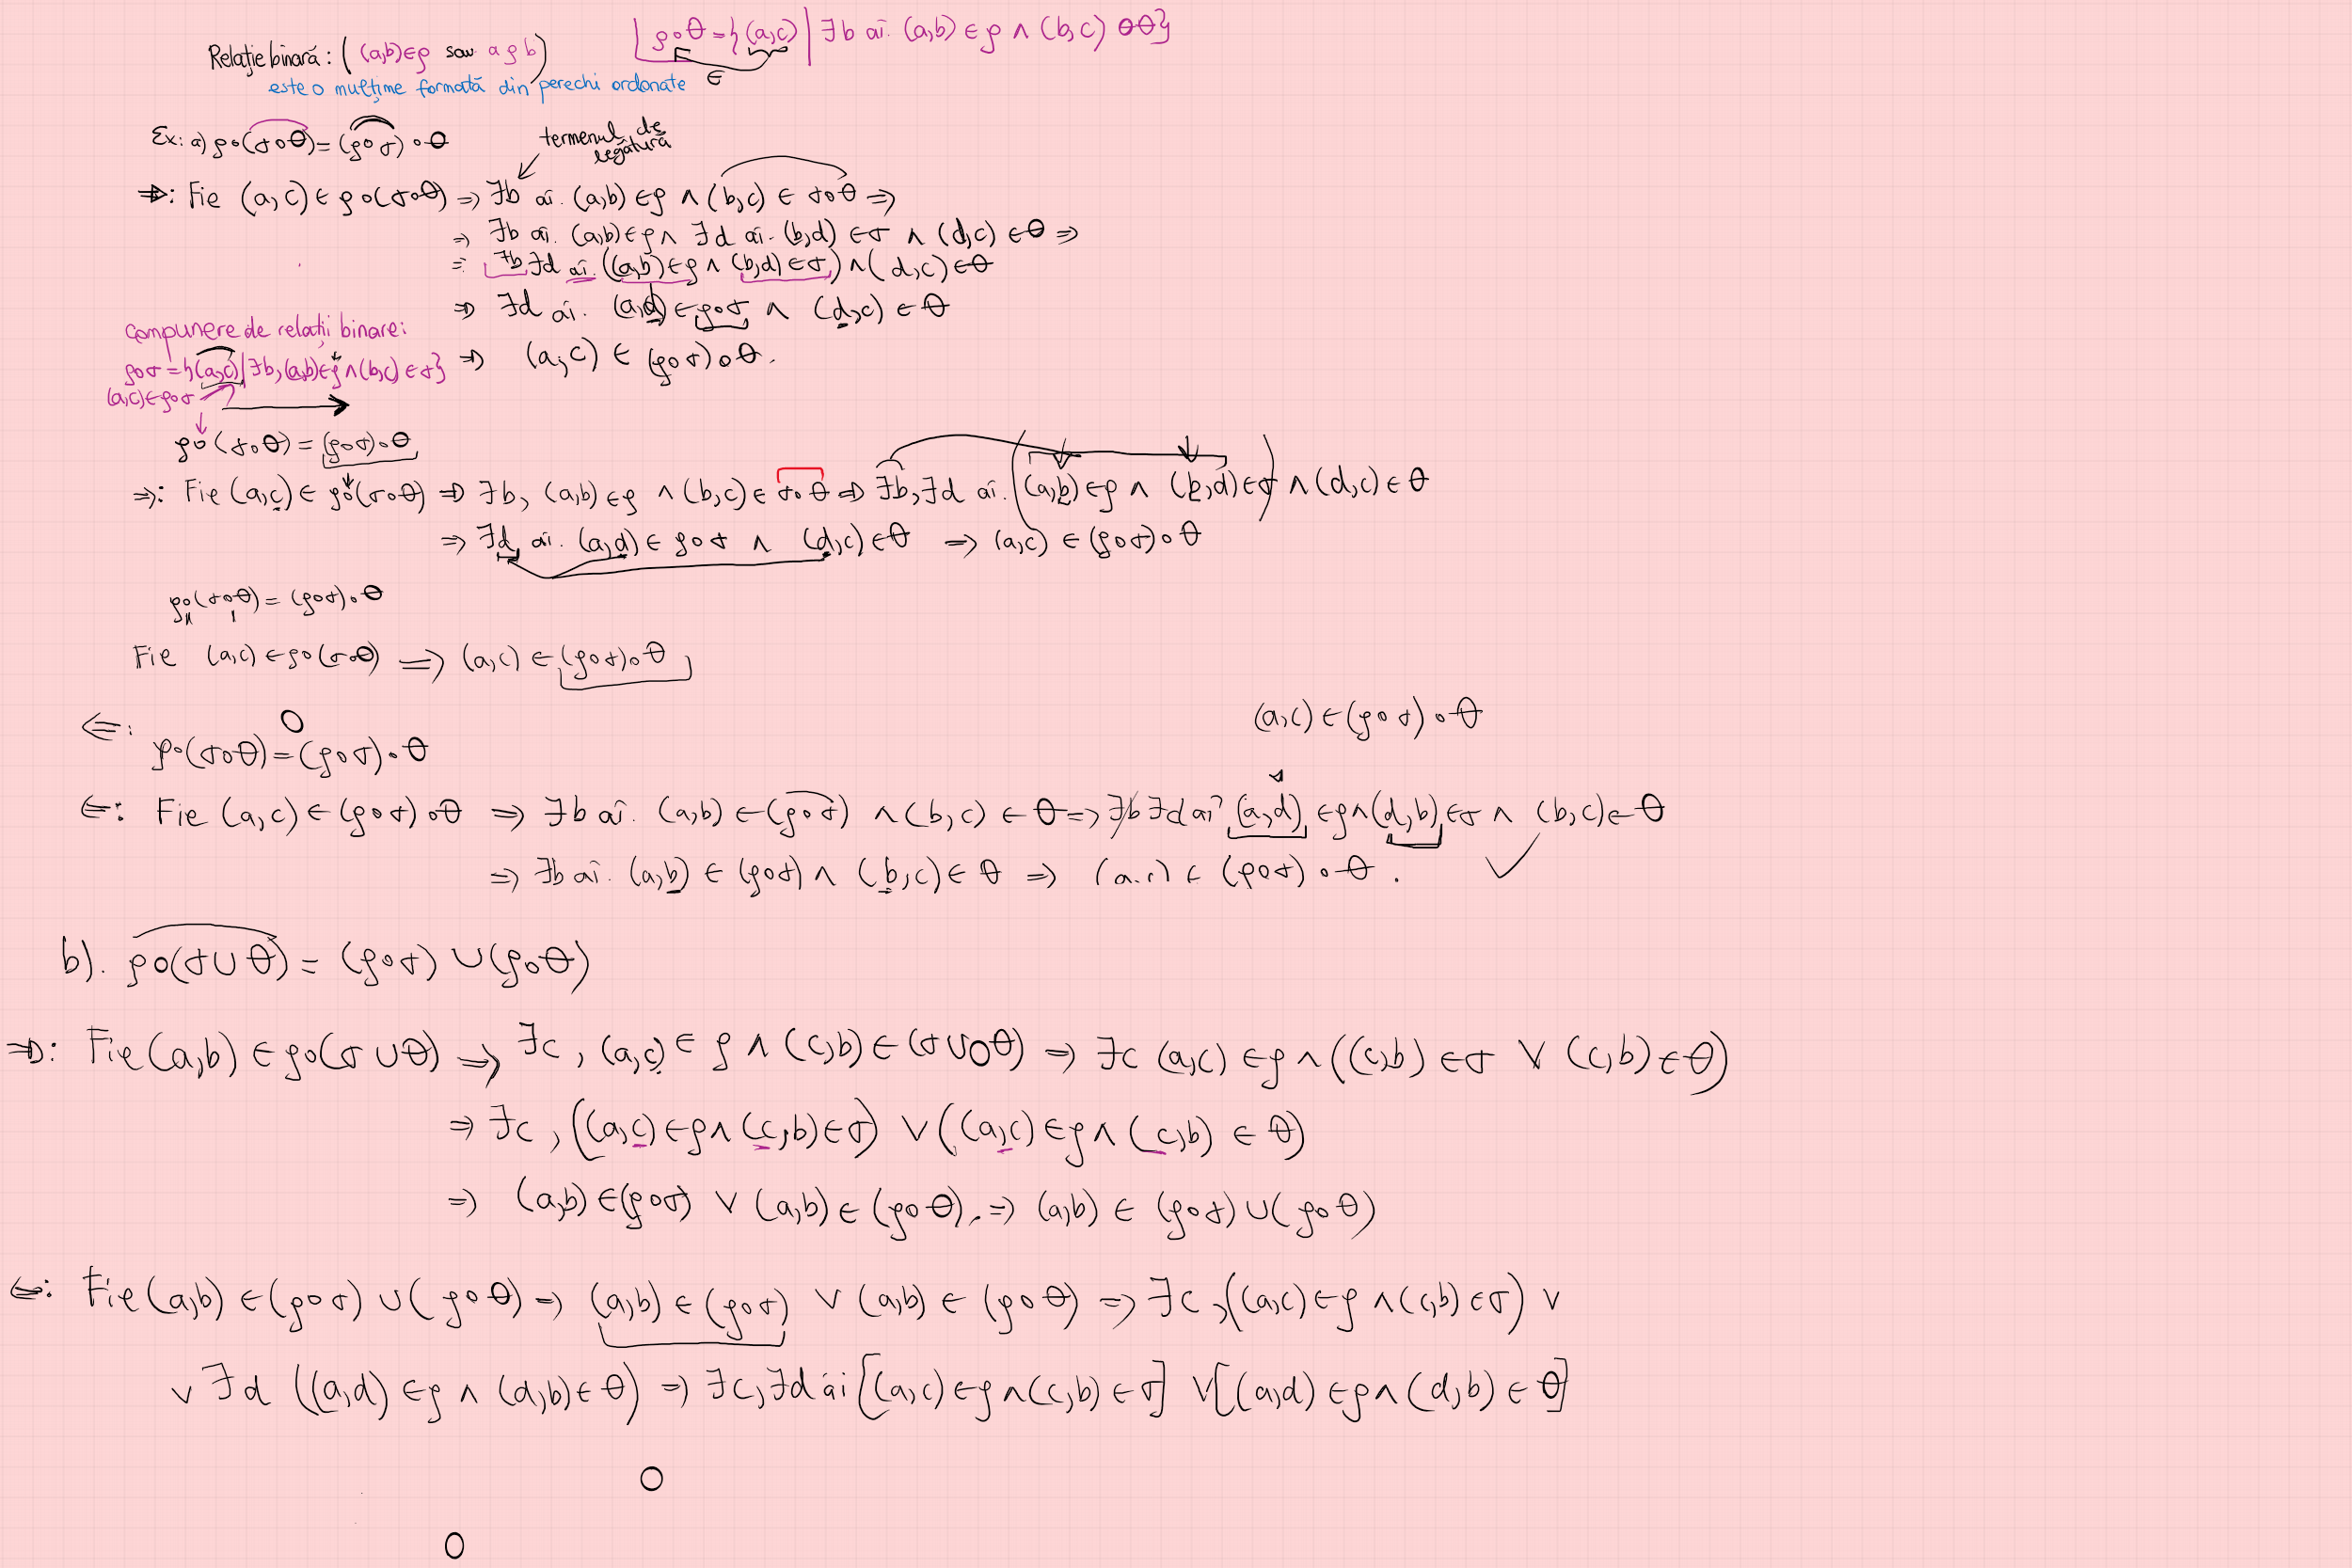 ρ∘θ={(a,c) | ∃b aî. (a,b) ∈ ρ ∧ (b,c) ∈θ}
Relație binară: ( (a,b)∈ρ sau aρb)
∈
este o mulțime formată din perechi ordonate
Ex: a) ρ∘(σ∘θ)=(ρ∘σ)∘θ
termenul de legătură
⇒: Fie (a,c) ∈ ρ∘(σ∘θ) ⇒ ∃b aî. (a,b) ∈ρ ∧ (b,c) ∈ σ∘θ ⇒
⇒ ∃b aî. (a,b)∈ρ∧ ∃d aî. (b,d) ∈σ ∧ (d,c) ∈θ ⇒
= ∃b∃d aî. ((a,b)∈ρ ∧ (b,d) ∈σ) ∧ (d,c) ∈θ
⇒ ∃d aî. (a,d) ∈ ρ∘σ ∧ (d,c) ∈ θ
Compunere de relații binare:
ρ∘σ={(a,c)|∃b,(a,b)∈ρ∧(b,c)∈σ} ⇒ (a,c) ∈ (ρ∘σ)∘θ.
(a,c)∈ρ∘σ
ρ∘(σ∘θ) = (ρ∘σ)∘θ
⇒: Fie (a,c) ∈ ρ∘(σ∘θ) ⇒ ∃b, (a,b) ∈ρ ∧ (b,c) ∈ σ∘θ ⇒ ∃b,∃d aî. ((a,b)∈ρ ∧ (b,d)∈σ) ∧ (d,c) ∈ θ
⇒ ∃d, aî. (a,d) ∈ ρ∘σ ∧ (d,c) ∈θ ⇒ (a,c) ∈ (ρ∘σ)∘θ
ρ∘(σ∘θ) = (ρ∘σ)∘θ
Fie (a,c) ∈ρ∘(σ∘θ) ⇒ (a,c) ∈ (ρ∘σ)∘θ
(a,c) ∈ (ρ∘σ)∘θ
⇐:
ρ∘(σ∘θ)=(ρ∘σ)∘θ
⇐: Fie (a,c) ∈ (ρ∘σ)∘θ ⇒ ∃b aî. (a,b) ∈ (ρ∘σ) ∧ (b,c) ∈ θ ⇒ ∃b ∃d aî (a,d) ∈ρ∧(d,b) ∈σ ∧ (b,c) ∈ θ
⇒ ∃b aî. (a,b) ∈ (ρ∘σ) ∧ (b,c) ∈ θ ⇒ (a,c) ∈ (ρ∘σ)∘θ. ✓
b). ρ∘(σ∪θ) = (ρ∘σ) ∪(ρ∘θ)
⇒: Fie (a,b) ∈ ρ∘(σ∪θ) ⇒ ∃c, (a,c) ∈ ρ ∧ (c,b) ∈ (σ∪θ) ⇒ ∃c (a,c) ∈ρ ∧((c,b) ∈σ ∨ (c,b) ∈θ)
⇒ ∃c, ((a,c) ∈ρ∧ (c,b)∈σ) ∨((a,c) ∈ρ∧ (c,b) ∈ θ)
⇒ (a,b) ∈(ρ∘σ) ∨ (a,b) ∈ (ρ∘θ). ⇒ (a,b) ∈ (ρ∘σ)∪(ρ∘θ)
⇐: Fie (a,b) ∈ (ρ∘σ) ∪ (ρ∘θ) ⇒ (a,b) ∈ (ρ∘σ) ∨ (a,b) ∈ (ρ∘θ) ⇒ ∃c, ((a,c) ∈ρ ∧(c,b) ∈σ) ∨
∨ ∃d ((a,d) ∈ρ ∧ (d,b)∈θ) ⇒ ∃c,∃d aî [(a,c) ∈ρ∧(c,b) ∈σ] ∨[(a,d) ∈ρ∧(d,b) ∈ θ]